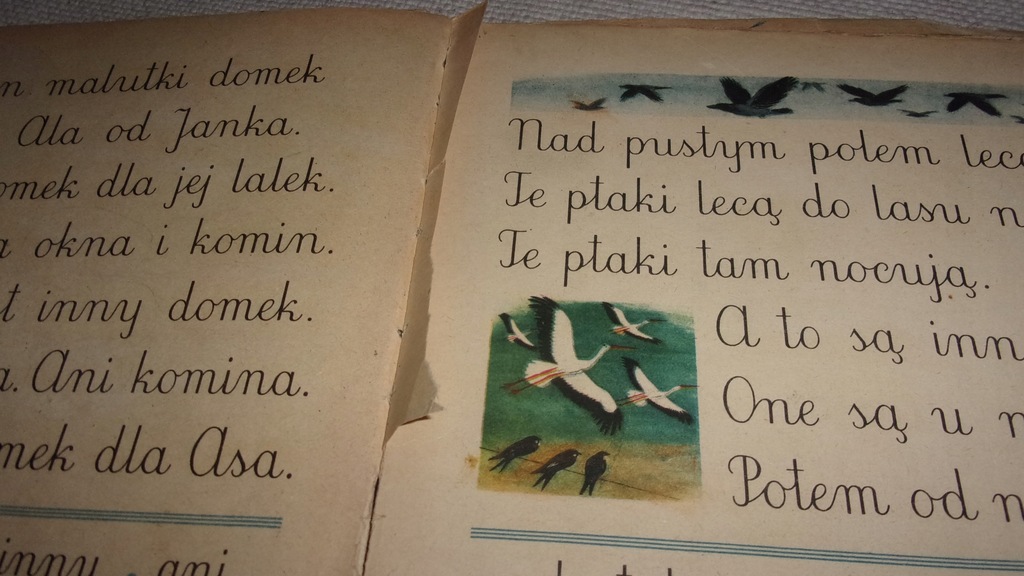 malutki domek
Ala od Janka.
dla jej lalek.
okna i komin.
inny domek.
Ani komina.
dla Asa.
inny ani
Nad pustym polem
Te ptaki lecą do lasu
Te ptaki tam nocują.
A to są
One są u
Potem od